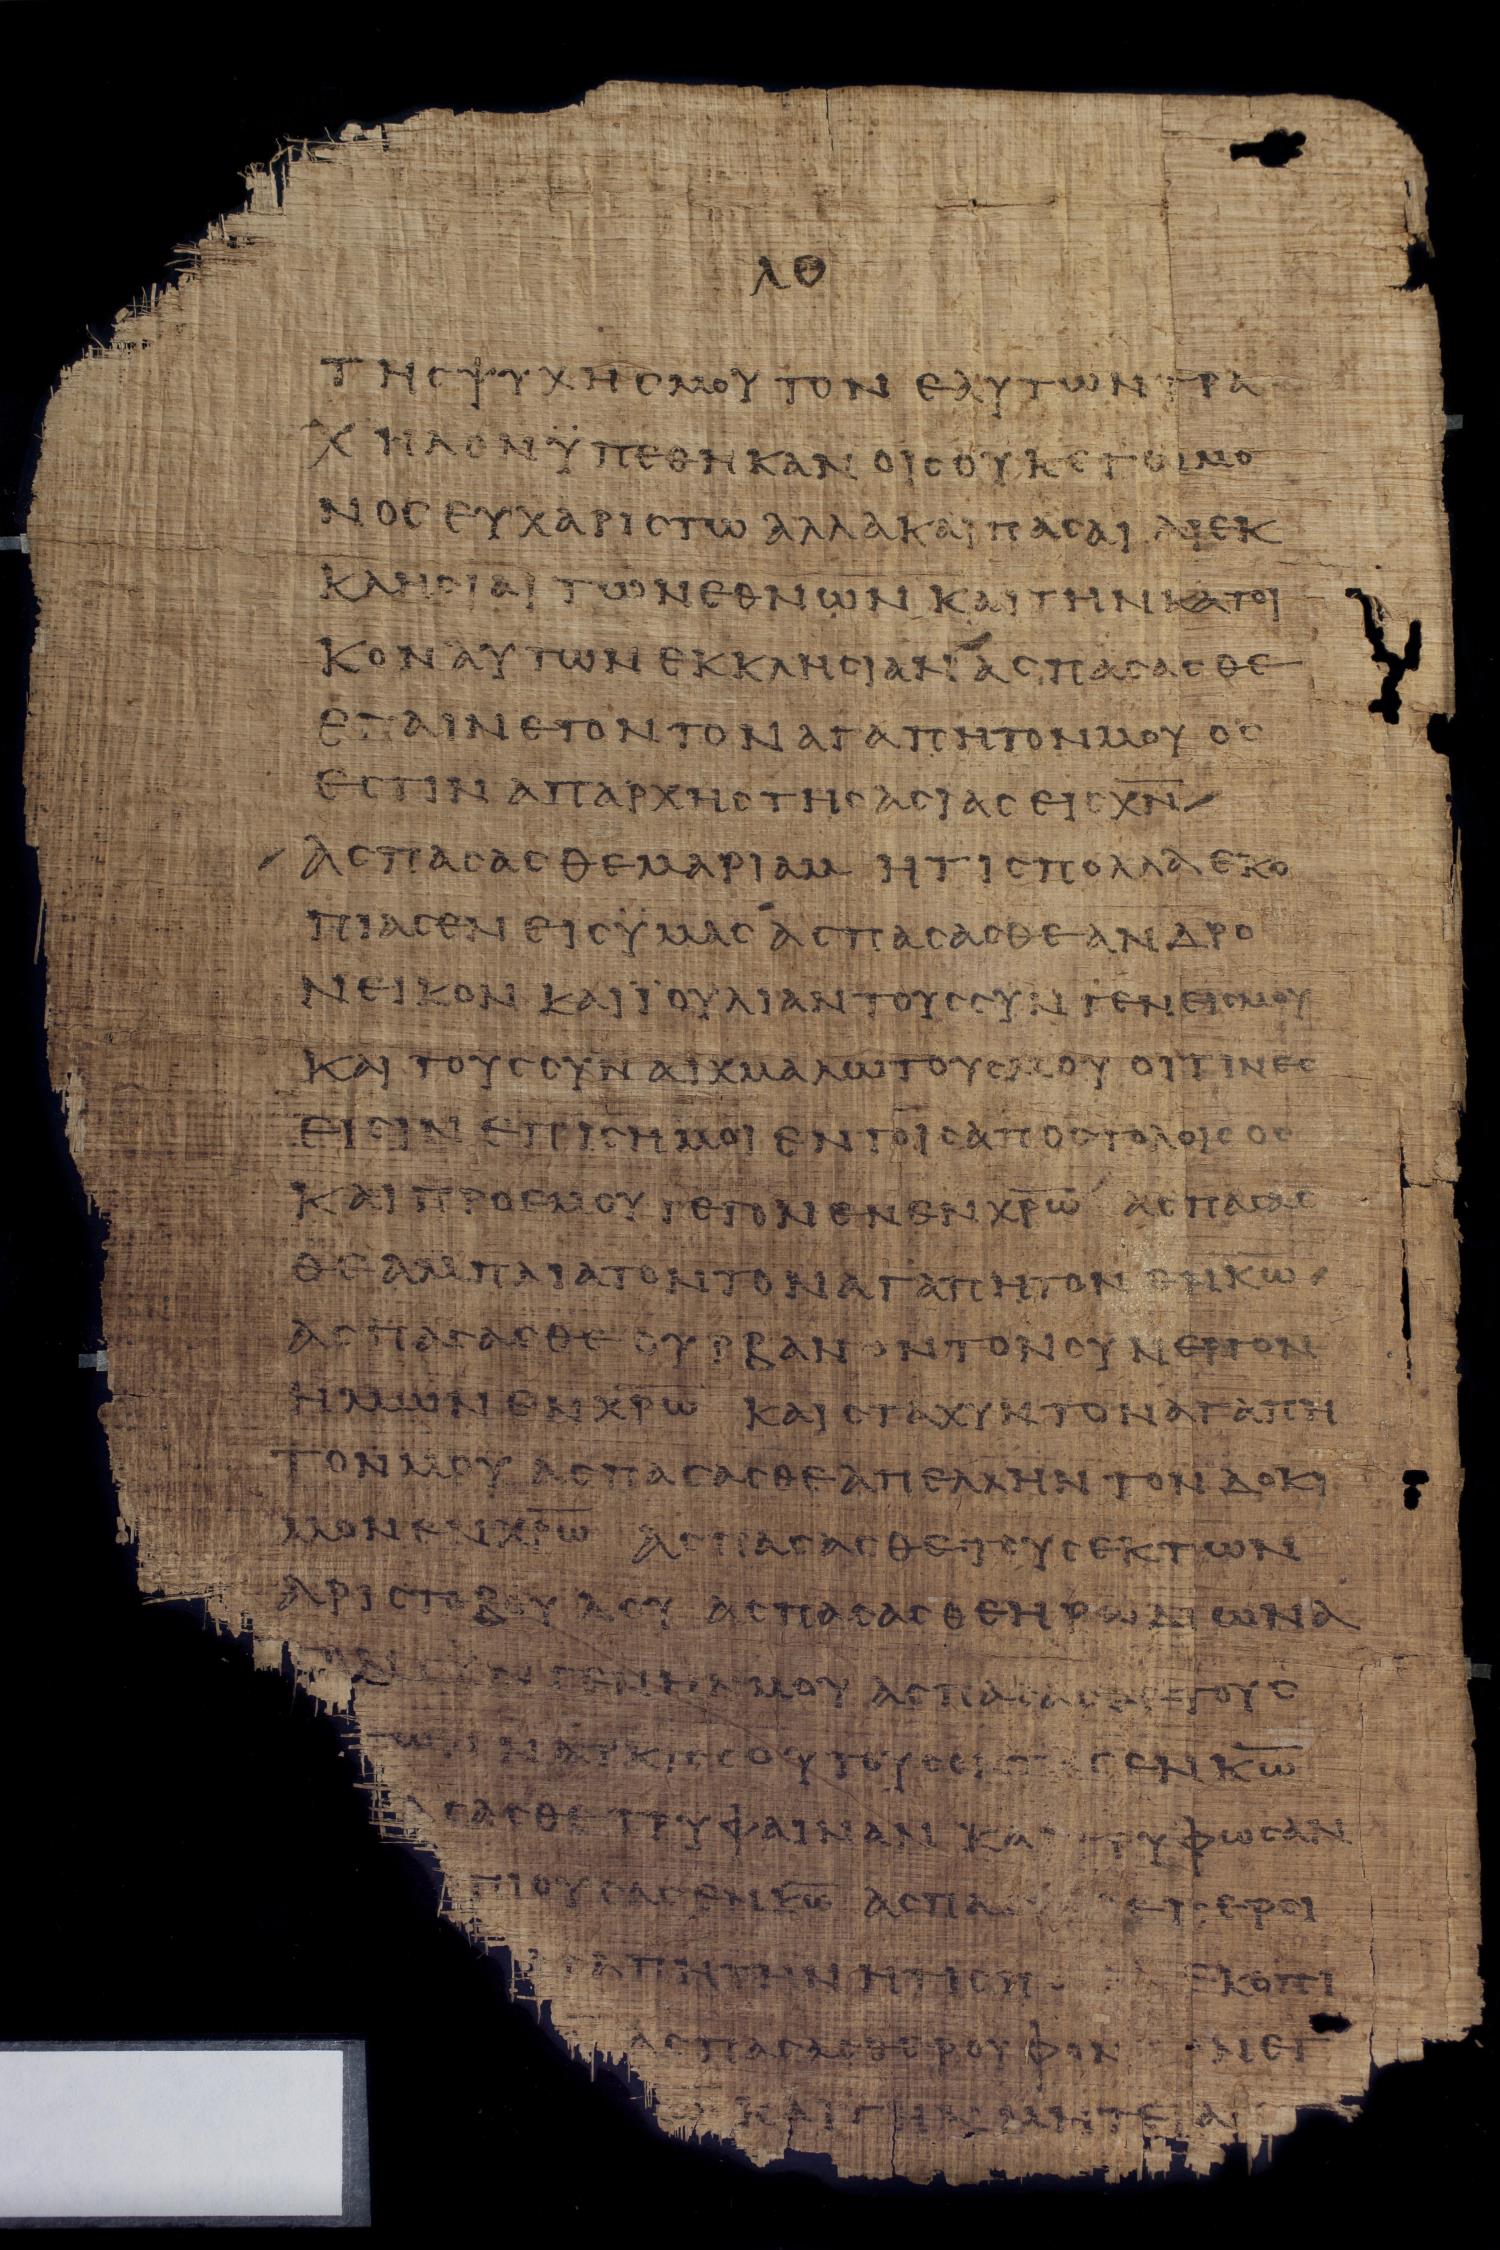 ΛΘ
ΤΗϹΨΥΧΗϹΜΟΥΤΟΝ ΕΑΥΤΩΝΤΡΑ
ΧΗΛΟΝΫΠΕΘΗΚΑΝ ΟΙϹΟΥΚΕΓΩΜΟ
ΝΟϹΕΥΧΑΡΙϹΤΩ ΑΛΛΑΚΑΙΠΑϹΑΙ ΑΙΕΚ
ΚΛΗϹΙΑΙ ΤΩΝΕΘΝΩΝ ΚΑΙΤΗΝΚΑΤΟΙ
ΚΟΝΑΥΤΩΝ ΕΚΚΛΗϹΙΑΝ ΑϹΠΑϹΑϹΘΕ
ΕΠΑΙΝΕΤΟΝΤΟΝΑΓΑΠΗΤΟΝΜΟΥ ΟϹ
ΕϹΤΙΝ ΑΠΑΡΧΗϹΤΗϹΑϹΙΑϹ ΕΙϹΧ̅Ν̅/
/ΑϹΠΑϹΑϹΘΕΜΑΡΙΑΜ ΗΤΙϹΠΟΛΛΑΕΚΟ
ΠΙΑϹΕΝ ΕΙϹΫΜΑϹ ΑϹΠΑϹΑϹΘΕΑΝΔΡΟ
ΝΕΙΚΟΝ ΚΑΙΪΟΥΛΙΑΝΤΟΥϹϹΥΝΓΕΝΕΙϹΜΟΥ
ΚΑΙ ΤΟΥϹϹΥΝΑΙΧΜΑΛΩΤΟΥϹΜΟΥ ΟΙΤΙΝΕϹ
ΕΙϹΙΝ ΕΠΙϹΗΜΟΙ ΕΝΤΟΙϹΑΠΟϹΤΟΛΟΙϹ ΟϹ
ΚΑΙ ΠΡΟΕΜΟΥ ΓΕΓΟΝΕΝ ΕΝ Χ̅Ρ̅Ω̅ ΑϹΠΑϹΑϹ
ΘΕ ΑΜΠΛΙΑΤΟΝΤΟΝΑΓΑΠΗΤΟΝ ΕΝΚ̅Ω̅/
ΑϹΠΑϹΑϹΘΕ ΟΥΡΒΑΝΟΝΤΟΝϹΥΝΕΡΓΟΝ
ΗΜΩΝ ΕΝ Χ̅Ρ̅Ω̅ ΚΑΙϹΤΑΧΥΝΤΟΝΑΓΑΠΗ
ΤΟΝΜΟΥ ΑϹΠΑϹΑϹΘΕΑΠΕΛΛΗΝ ΤΟΝΔΟΚΙ
ΜΟΝΕΝΧ̅Ρ̅Ω̅ ΑϹΠΑϹΑϹΘΕΤΟΥϹΕΚΤΩΝ
ΑΡΙϹΤΟΒΟΥΛΟΥ ΑϹΠΑϹΑϹΘΕΗΡΩΔΙΩΝΑ
ϹΥΝΓΕΝΗΜΟΥ ΑϹΠΑϹΑϹΘΕΤΟΥϹ
ΝΑΡΚΙϹϹΟΥ ΤΟΥϹ ΕΝΚ̅Ω̅
ΑϹΑϹΘΕ ΤΡΥΦΑΙΝΑΝ ΚΑΙ ΤΡΥΦΩϹΑΝ
ΠΙΟΥϹΑϹ ΕΝΚ̅Ω̅ ΑϹΠΑ ΠΕΡϹΙ
ΓΑΠΗΤΗΝ ΗΤΙϹΠ ΕΚΟΠΙ
ΑϹΠΑϹΑϹΘΕΡΟΥΦΟΝ ΕΚΛΕΓ
Ω ΚΑΙΤΗΝΜΗΤΕΡΑ